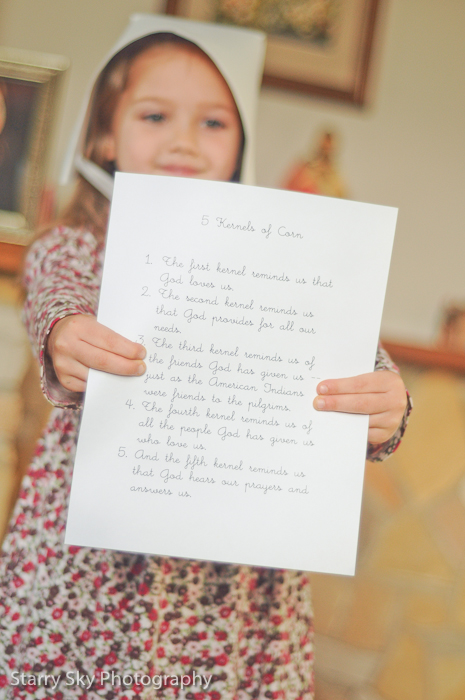 5 Kernels of Corn
1. The first kernel reminds us that
God loves us.
2. The second kernel reminds us
that God provides for all our
needs.
3. The third kernel reminds us of
the friends God has given us --
just as the American Indians
were friends to the pilgrims.
4. The fourth kernel reminds us of
all the people God has given us
who love us.
5. And the fifth kernel reminds us
that God hears our prayers and
answers us.
Starry Sky Photography